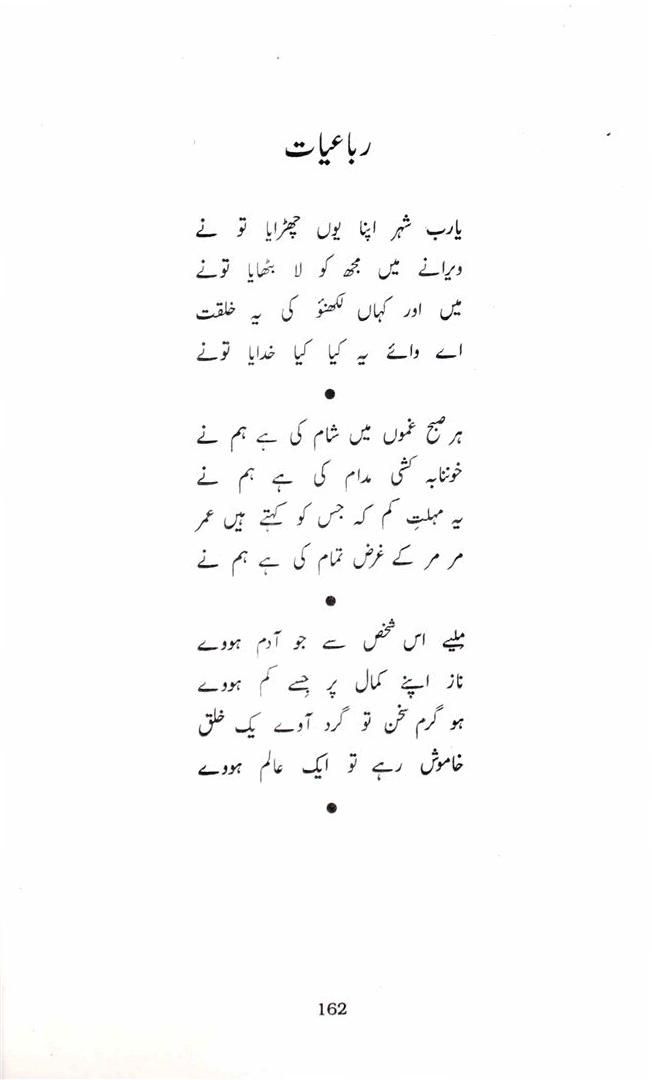 رباعیات
یارب شہر اپنا یوں چھڑایا تو نے
ویرانے میں مجھ کو لا بٹھایا تونے
میں اور کہاں لکھنؤ کی یہ خلقت
اے وائے یہ کیا کیا خدایا تونے
●
ہر صبح غموں میں شام کی ہے ہم نے
خوننابہ کشی مدام کی ہے ہم نے
یہ مہلتِ کم کہ جس کو کہتے ہیں عمر
مر مر کے غرض تمام کی ہے ہم نے
●
ملیے اس شخص سے جو آدم ہووے
ناز اپنے کمال پر جِسے کم ہووے
ہو گرم سخن تو گرد آوے یک خلق
خاموش رہے تو ایک عالم ہووے
●
162